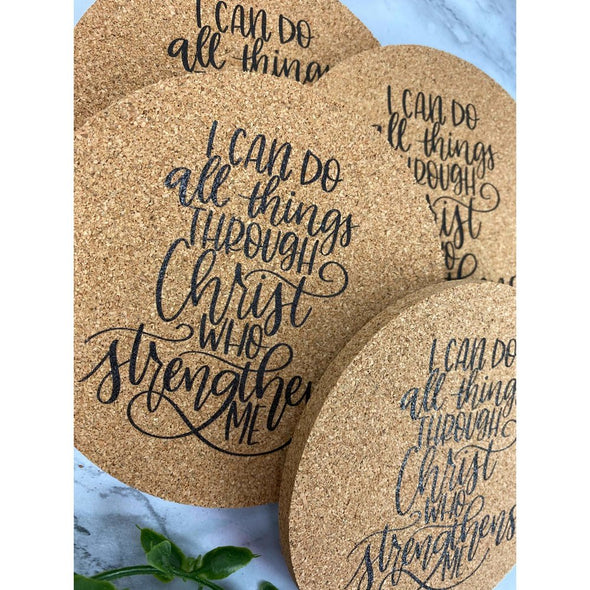 I CAN DO
all thing
I CAN DO
all things
THROUGH
Christ
WHO
strengthen
ME
I CAN DO
all things
ROUGH
ist
I CAN DO
all things
THROUGH
Christ
WHO
strengthens
ME